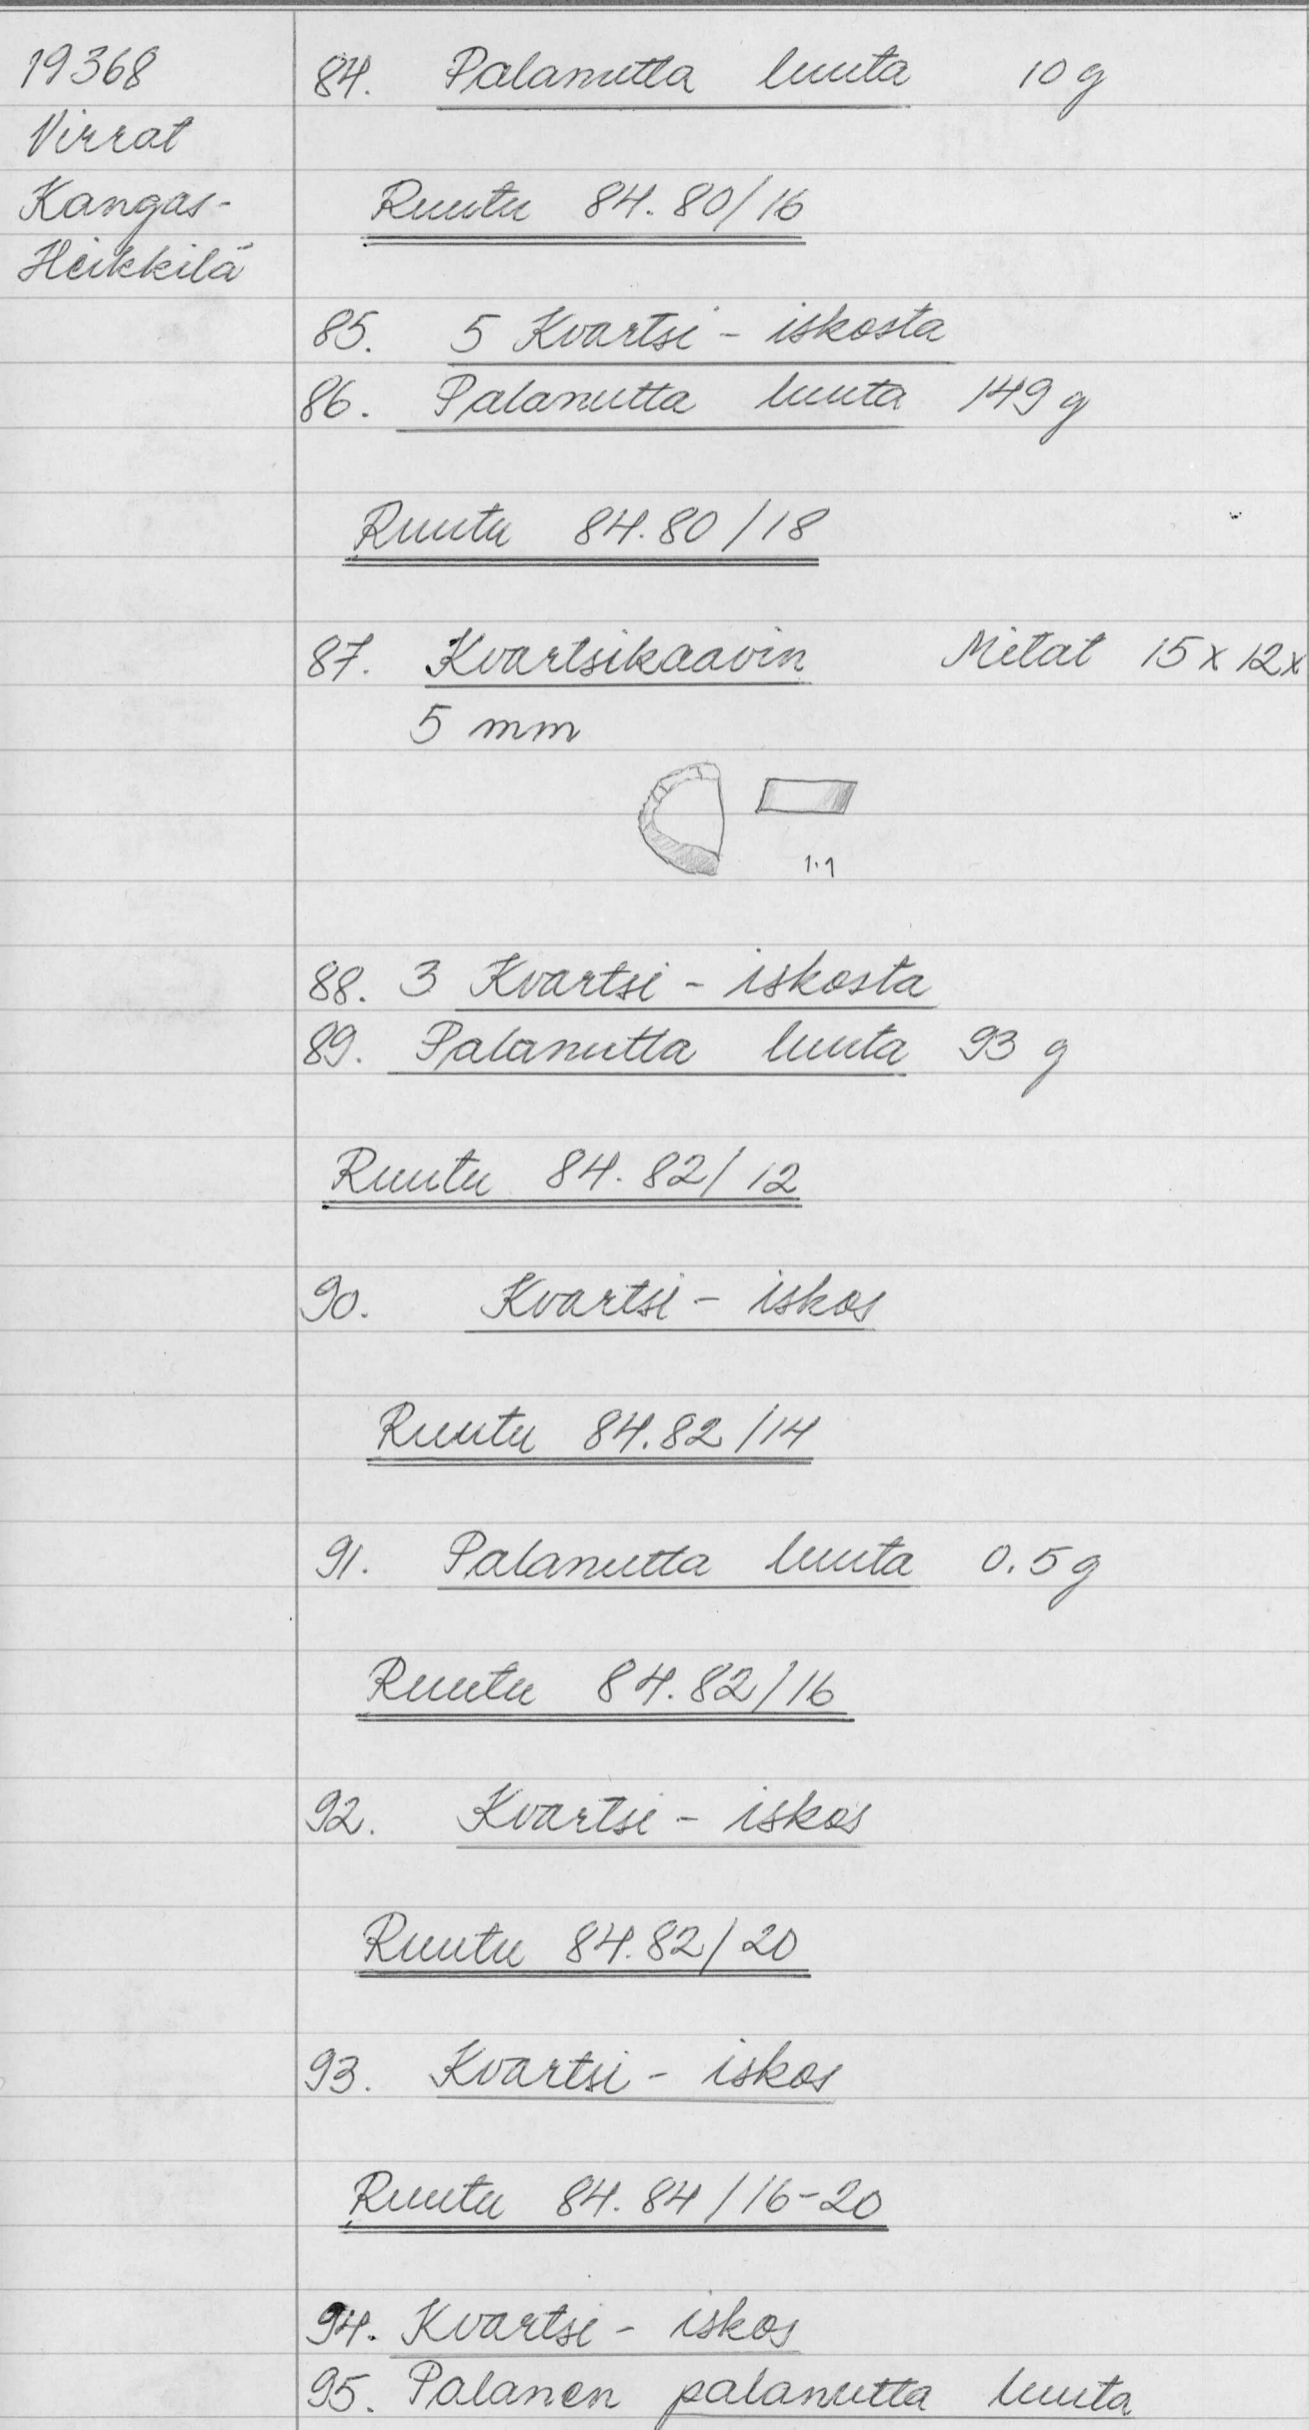 19368
Virrat
Kangas-
Heikkilä
84. Palanutta luuta 10 g
Ruutu 84.80/16
85. 5 Kvartsi - iskosta
86. Palanutta luuta 149 g
Ruutu 84.80/18
87. Kvartsikaavin Mitat 15 x 12 x
5 mm
1:1
88. 3 Kvartsi - iskosta
89. Palanutta luuta 93 g
Ruutu 84.82/12
90. Kvartsi - iskos
Ruutu 84.82/14
91. Palanutta luuta 0.5 g
Ruutu 84.82/16
92. Kvartsi - iskos
Ruutu 84.82/20
93. Kvartsi - iskos
Ruutu 84.84/16-20
94. Kvartsi - iskos
95. Palanen palanutta luuta